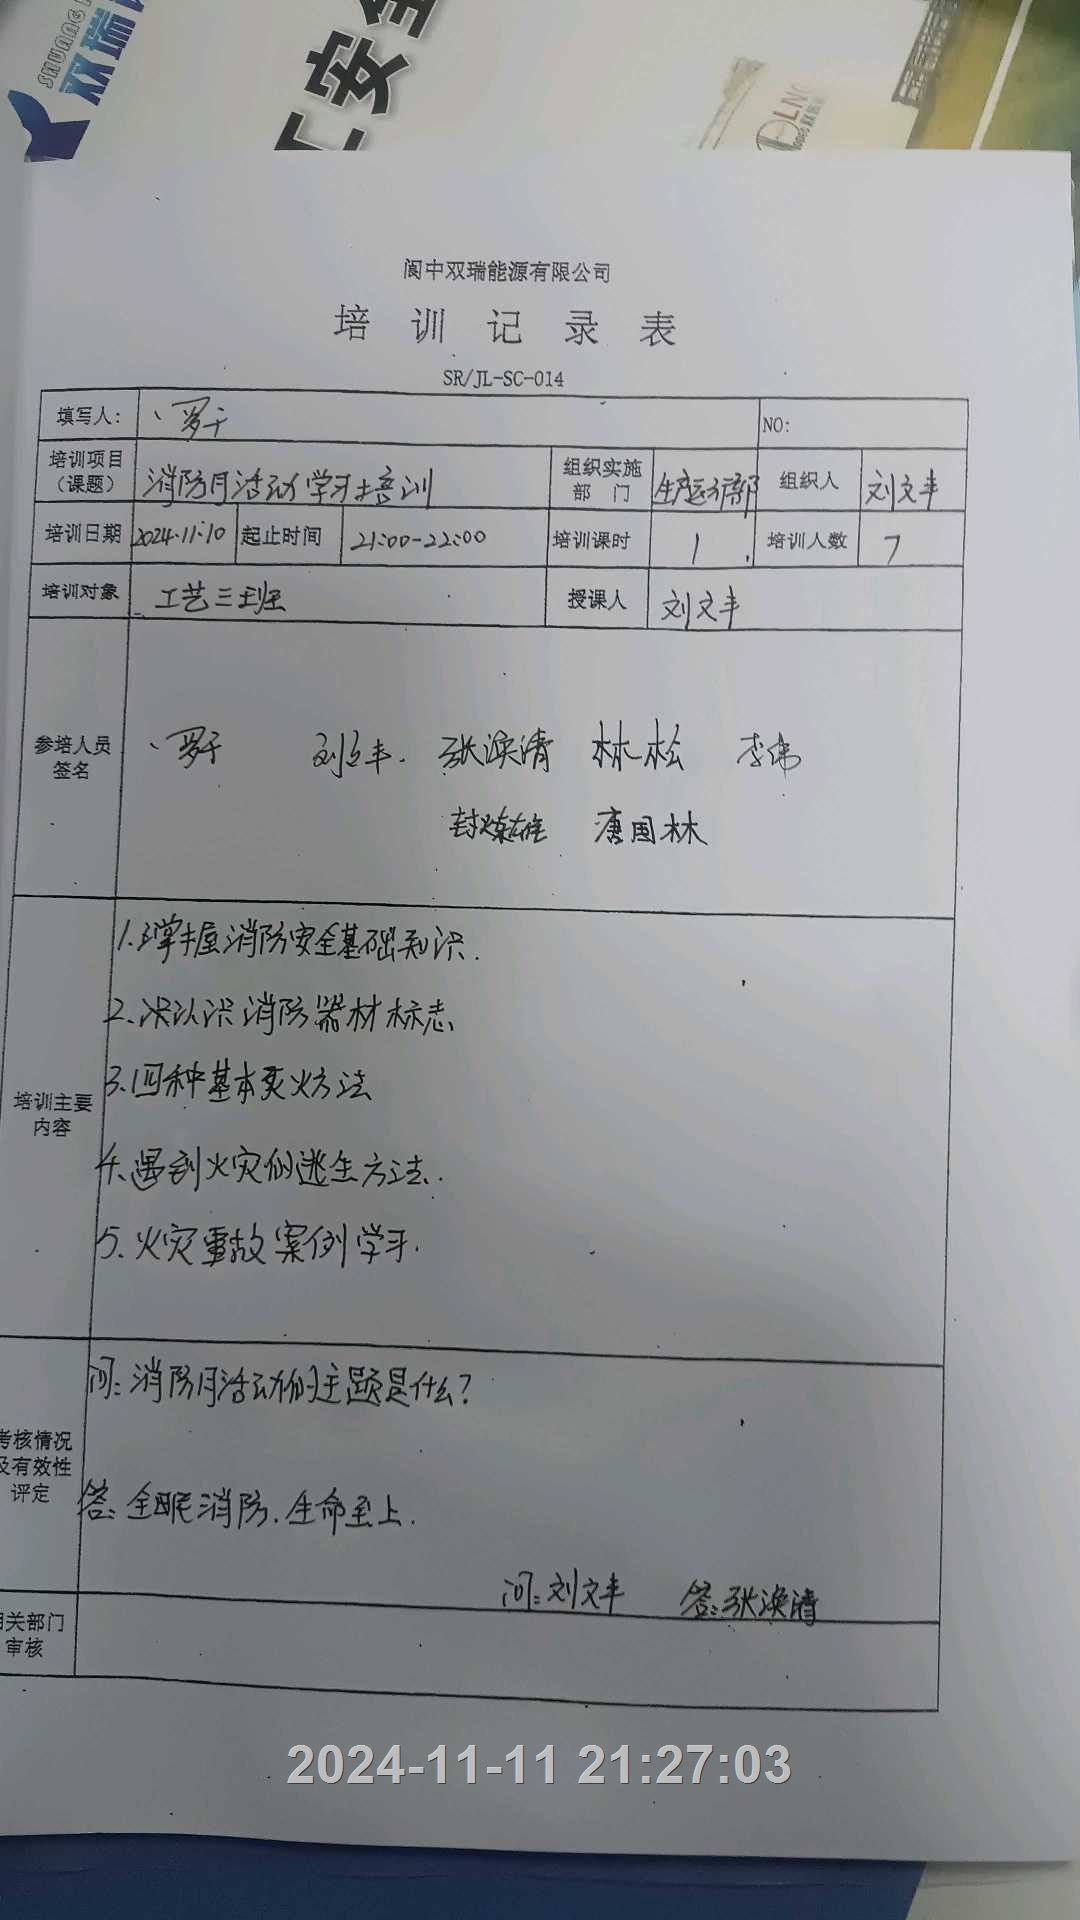 SHUANG
双瑞
汇安全
LNG
阆中双瑞能源有限公司
培训记录表
SR/JL-SC-014
填写人: 罗于 NO:
培训项目(课题) 消防月活动学习培训 组织实施部门 生产运行部 组织人 刘文丰
培训日期 2024.11.10 起止时间 21:00-22:00 培训课时 1 培训人数 7
培训对象 工艺三班 授课人 刘文丰
参培人员签名 罗于 刘文丰. 张涣清 林松 李伟
封炼雄 唐国林
1.掌握消防安全基础知识.
2.识认识消防器材标志
培训主要内容
3.四种基本灭火方法
4.遇到火灾的逃生方法.
5.火灾事故案例学习.
问:消防月活动的主题是什么?
考核情况及有效性评定
答:全民消防.生命至上.
问:刘文丰 答:张涣清
相关部门审核
2024-11-11 21:27:03